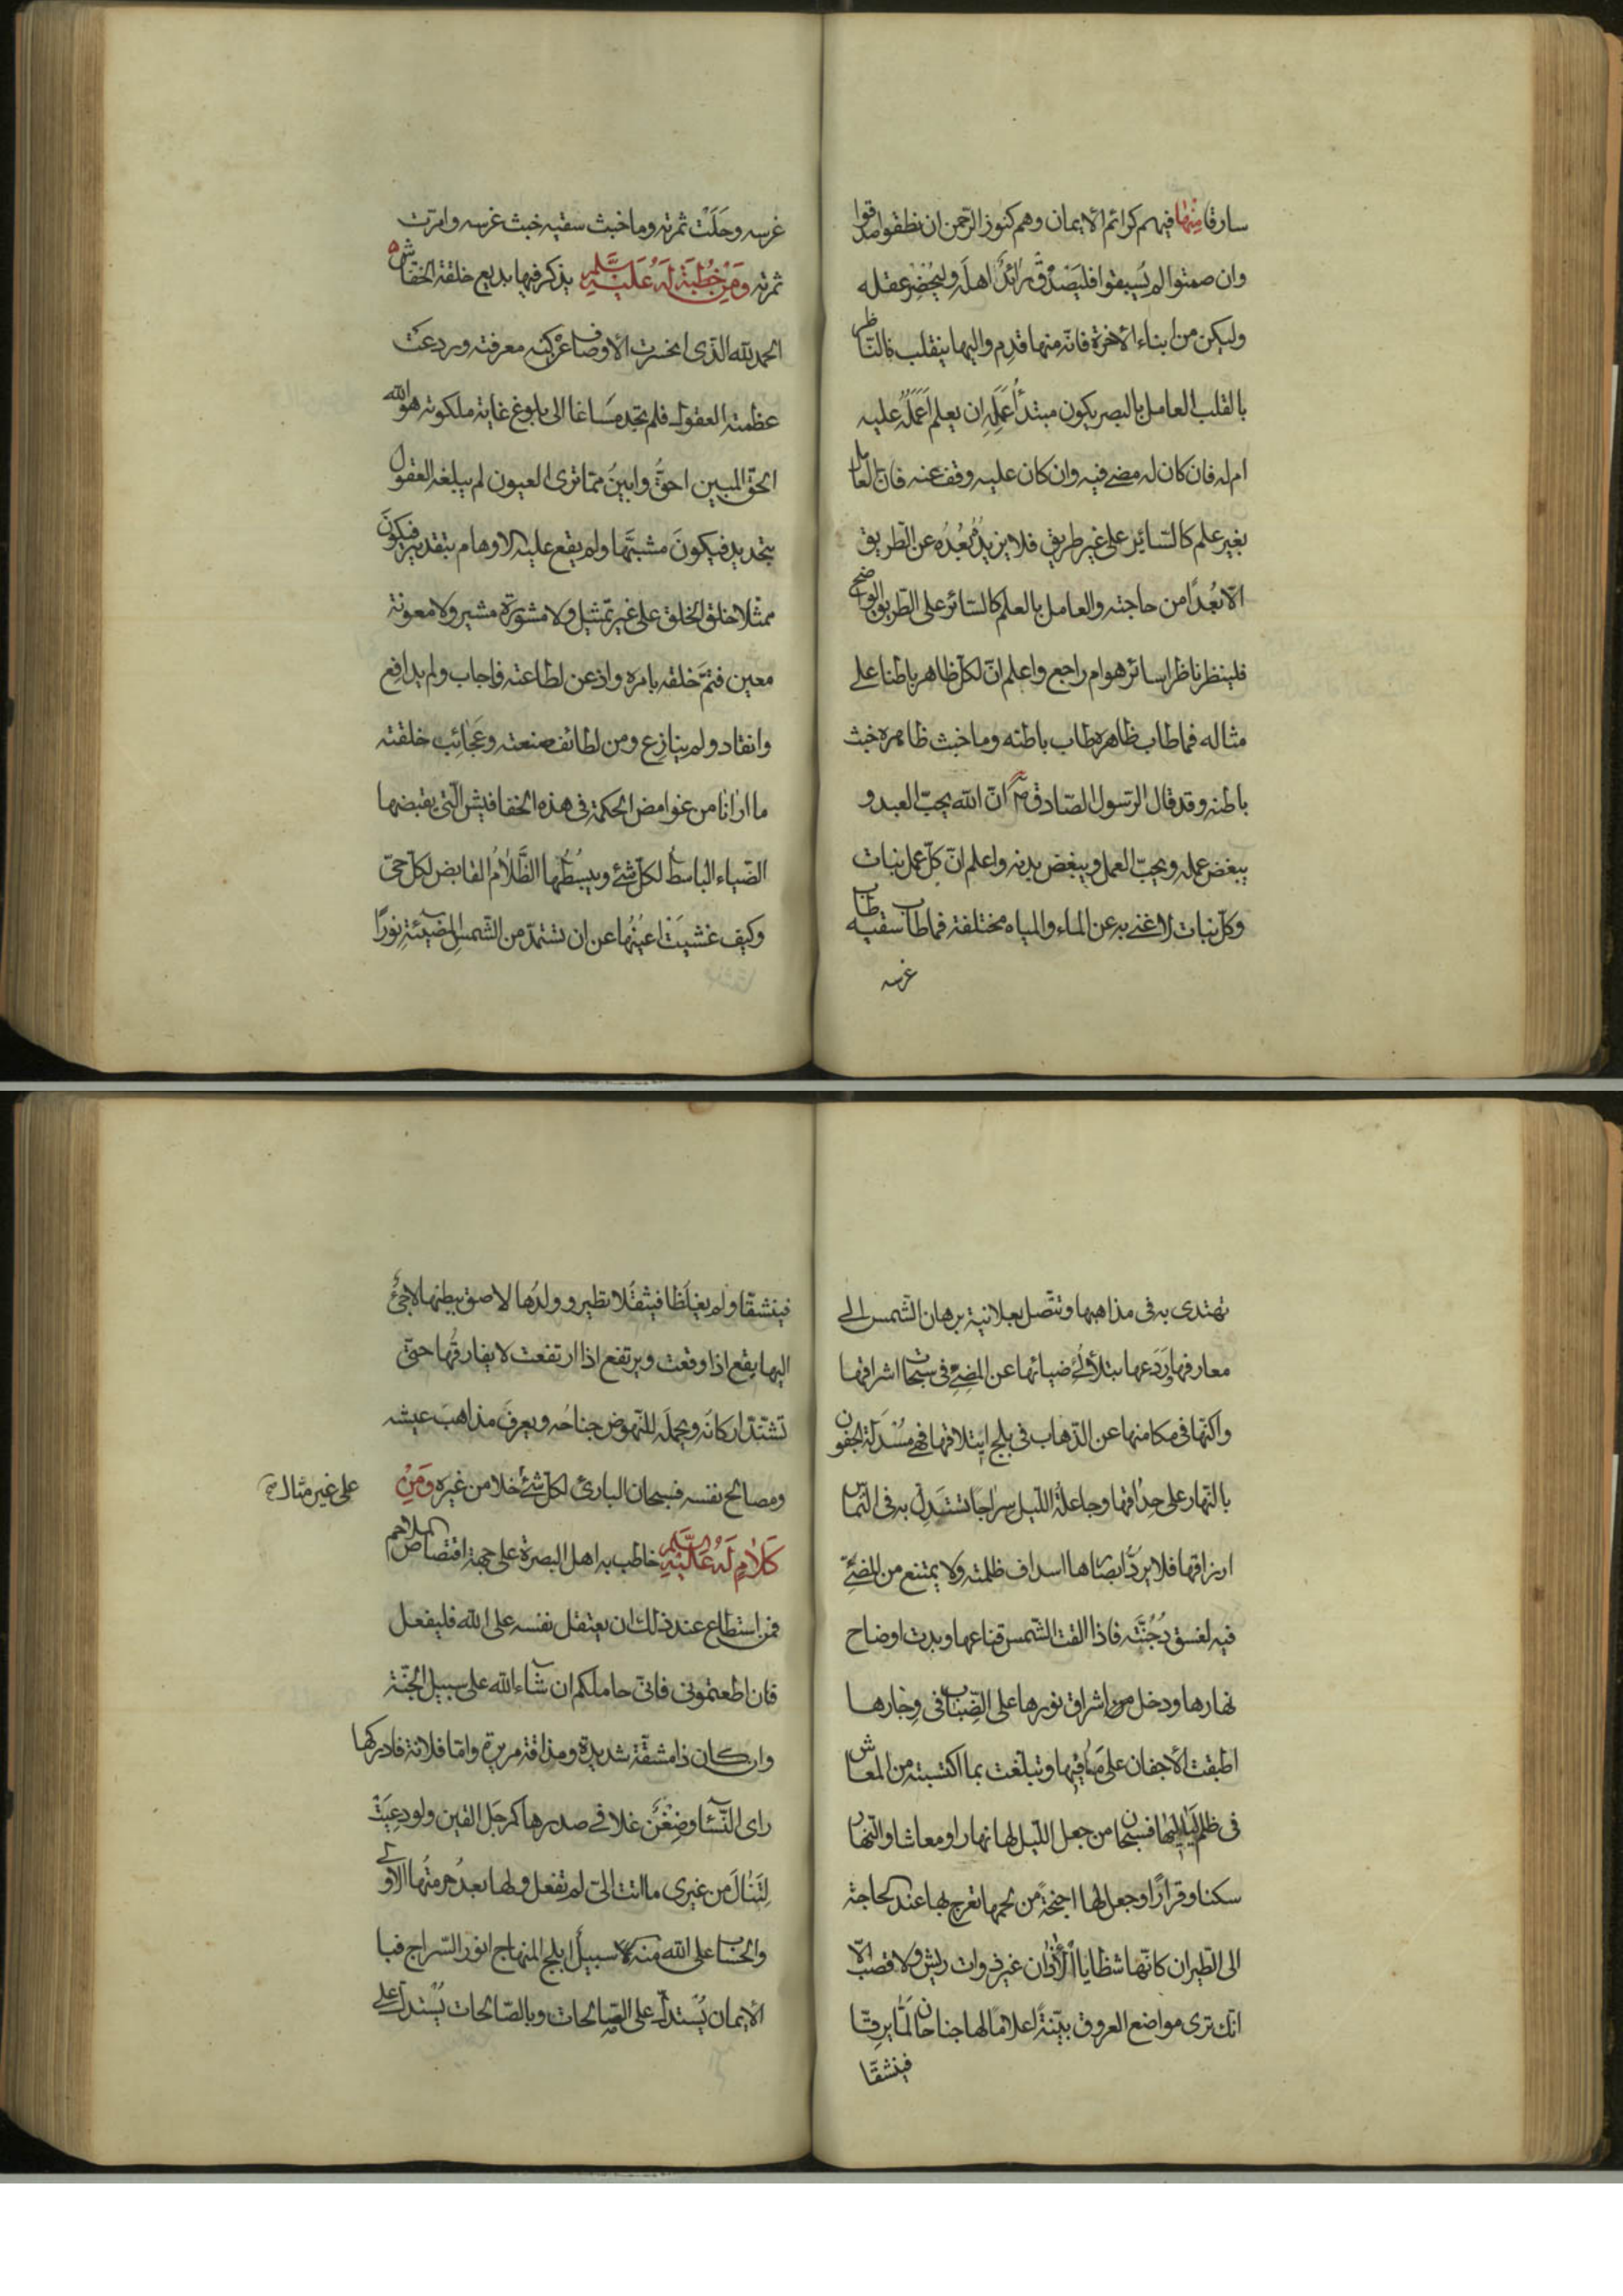 سارقا منها فيهم كرائم الايمان وهم كنوز الرحمن ان نطقوا صدقوا
وان صمتوا لم يُسبقوا فليَصْدُقْ رائدٌ اهلَه وليُحْضِرْ عقله
وليكن من ابناء الاخرة فانه منها قدِم واليها ينقلب فالناظر
بالقلب العامل بالبصر يكون مبتدأُ عَمَلِهِ ان يعلم أعَمَلُهُ عليه
ام له فان كان له مضى فيه وان كان عليه وقف عنه فان العامل
بغير علم كالسائر على غير طريق فلا يزيدُه بُعْدُه عن الطريق
الا بُعْدًا من حاجته والعامل بالعلم كالسائر على الطريق الواضح
فلينظر ناظر اسائر هو ام راجع واعلم انّ لكل ظاهر باطنا على
مثاله فما طاب ظاهره طاب باطنه وما خبث ظاهره خبث
باطنه وقد قال الرسول الصادق ص انّ الله يحبّ العبد و
يبغض عمله ويحبّ العمل ويبغض بدنه واعلم انّ كلّ عمل نبات
وكلّ نبات لا غنى به عن الماء والمياه مختلفة فما طاب سقيه طاب
غرسه
غرسه وحَلَتْ ثمرته وما خبث سقيه خبث غرسه وامرّت
ثمرته وَمِنْ خُطْبَةٍ لَهُ عَلَيْهِ السَّلَم يذكر فيها بديع خلقة الخفاش
الحمد لله الذى انحسرت الاوصاف عن كنه معرفته وردعت
عظمته العقول فلم تجد مَساغا الى بلوغ غاية ملكوته هو الله
الحق المبين احقُّ وابينُ ممّا ترى العيون لم يبلغه العقول
بتحديد فيكونَ مشبَّها ولم يقع عليه الاوهام بتقدير فيكونَ
ممثلا خلق الخلق على غير تمثيل ولا مشورة مشير ولا معونة
معين فتمَّ خلقه بامره واذعن لطاعته فاجاب ولم يدافع
وانقاد ولم ينازع ومن لطائف صنعته وعَجائِب خلقته
ما ارانا من غوامض الحكمة فى هذه الخفافيش التى يقبضها
الضياء الباسط لكل شئ ويبسُطُها الظَّلامُ القابض لكل حىّ
وكيف غشيَتْ اعينُها عن ان تستمدّ من الشمس المضيئة نورًا
تهتدى به فى مذاهبها وتتّصل بعلانية برهان الشمس الى
معارفها ورَدَعها بتلألؤ ضيائها عن المضىّ فى سبحات اشراقها
واكنّها فى مكامنها عن الذهاب فى بلج ايتلاقها فهى مُسْدَلة الجفون
بالنهار على حِداقها وجاعلةُ الليل سراجا تستَدِلّ به فى التماس
ارزاقها فلا يردّ ابصارها اسداف ظلمته ولا يمتنع من المضىّ
فيه لغسق دُجُنَّته فاذا القت الشمس قناعها وبدت اوضاح
نهارها ودخل من اشراق نورها على الضِّباب فى وِجارها
اطبقت الاجفان على مَآقيها وتبلّغت بما اكتسبته من المعاش
فى ظلم لياليها فسبحان من جعل الليل لها نهارا ومعاشا والنهار
سكنا وقرارًا وجعل لها اجنحةً من لحمها تعرج بها عند الحاجة
الى الطيران كانّها شظايا الآذان غير ذوات ريش ولا قصب الّا
انك ترى مواضع العروق بيّنةً اعلاما لها جناحان لَمّا يرقّا
فينشقّا
فينشقّا ولم يغلظا فيثقلا تطير وولدُها لاصق ببطنها لاجئٌ
اليها يقع اذا وقعت ويرتفع اذا ارتفعت لا يفارقُها حتى
تشتدّ اركانَه ويحملَه للنهوض جناحُه ويعرفَ مذاهبَ عيشه
ومصالح نفسه فسبحان البارئ لكل شئ خلا من غيره وَمِنْ
على غير مثال صح
كَلامٍ لَهُ عَلَيْهِ السَّلَم خاطب به اهل البصرة على جهة اقتصاص الملاحم
فمن استطاع عند ذلك ان يعتقل نفسه على الله فليفعل
فان اطعتمونى فانّى حاملكم ان شاء الله على سبيل الجنّة
وان كان ذا مشقّة شديدة ومذاقة مريرة وامّا فلانة فادركها
راى النّساء وضِغْنٌ غلا فى صدرها كمرجل القين ولو دعِيَتْ
لِتَنالَ من غيرى ما اتت الىّ لم تفعل ولها بعدُ حرمتُها الاولى
والحساب على الله منه سبيل ابلج المنهاج انور السّراج فبا
الايمان يُستدلّ على الصالحات وبالصّالحات يُستدلّ على